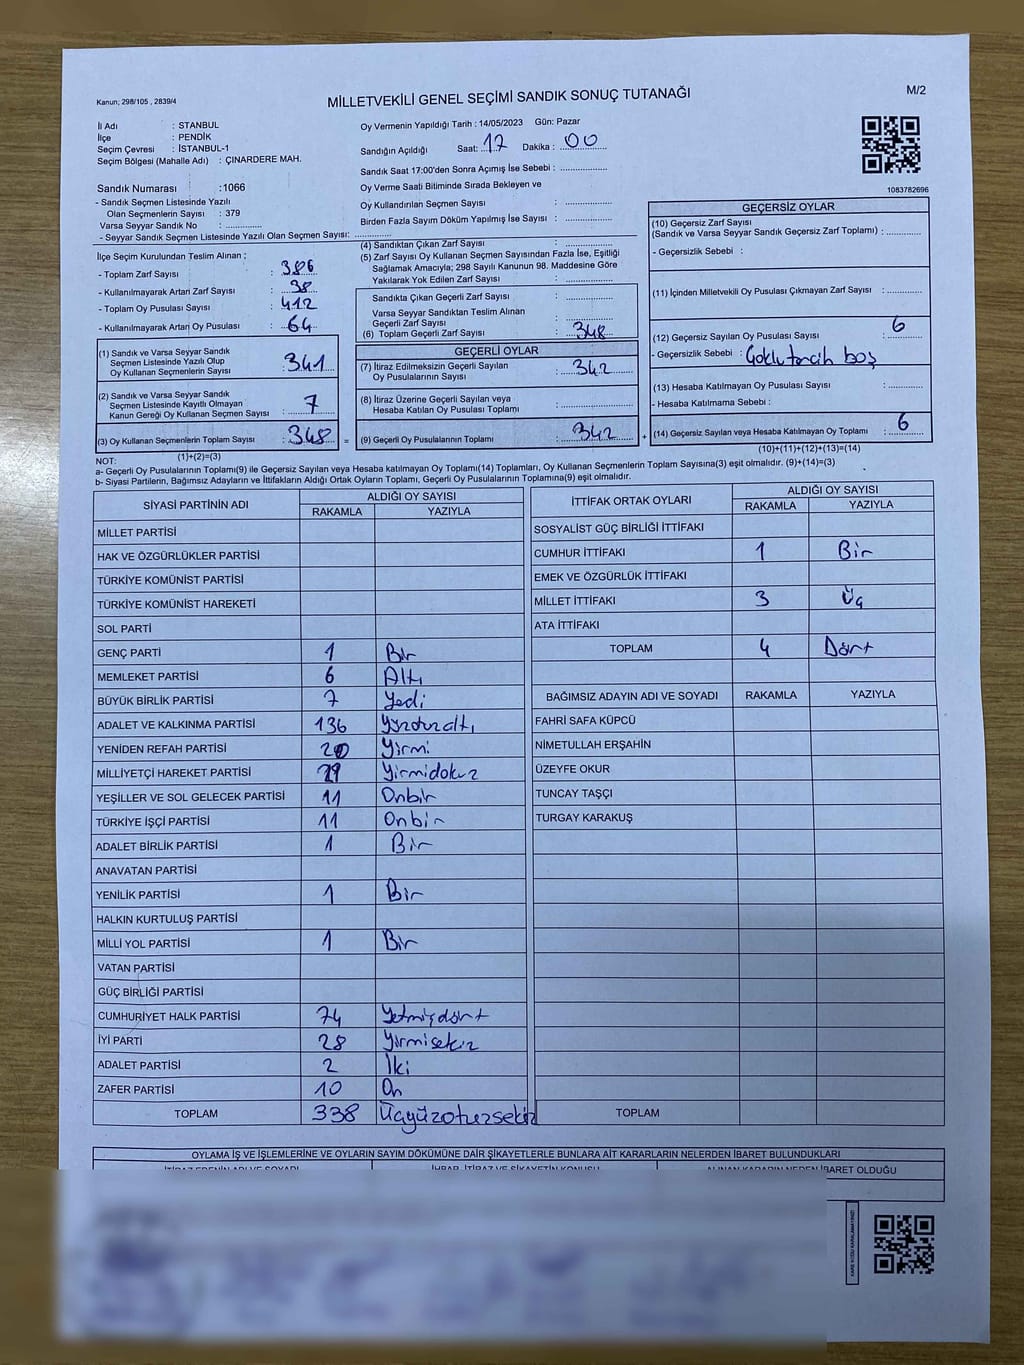 Kanun; 298/105 , 2839/4
MİLLETVEKİLİ GENEL SEÇİMİ SANDIK SONUÇ TUTANAĞI
M/2
İl Adı : STANBUL
İlçe : PENDİK
Seçim Çevresi : İSTANBUL-1
Seçim Bölgesi (Mahalle Adı) : ÇINARDERE MAH.
Oy Vermenin Yapıldığı Tarih : 14/05/2023 Gün: Pazar
Sandığın Açıldığı Saat: 17 Dakika : 00
Sandık Saat 17:00'den Sonra Açımış İse Sebebi :
Oy Verme Saati Bitiminde Sırada Bekleyen ve
Oy Kullandırılan Seçmen Sayısı :
Birden Fazla Sayım Döküm Yapılmış İse Sayısı :
1083782696
Sandık Numarası :1066
- Sandık Seçmen Listesinde Yazılı
Olan Seçmenlerin Sayısı : 379
Varsa Seyyar Sandık No :
- Seyyar Sandık Seçmen Listesinde Yazılı Olan Seçmen Sayısı:
İlçe Seçim Kurulundan Teslim Alınan ;
- Toplam Zarf Sayısı : 386
- Kullanılmayarak Artan Zarf Sayısı : 38
- Toplam Oy Pusulası Sayısı : 412
- Kullanılmayarak Artan Oy Pusulası : 64
(1) Sandık ve Varsa Seyyar Sandık
Seçmen Listesinde Yazılı Olup
Oy Kullanan Seçmenlerin Sayısı : 341
(2) Sandık ve Varsa Seyyar Sandık
Seçmen Listesinde Kayıtlı Olmayan
Kanun Gereği Oy Kullanan Seçmen Sayısı : 7
(3) Oy Kullanan Seçmenlerin Toplam Sayısı : 348 =
(1)+(2)=(3)
(4) Sandıktan Çıkan Zarf Sayısı :
(5) Zarf Sayısı Oy Kullanan Seçmen Sayısından Fazla İse, Eşitliği
Sağlamak Amacıyla; 298 Sayılı Kanunun 98. Maddesine Göre
Yakılarak Yok Edilen Zarf Sayısı :
Sandıkta Çıkan Geçerli Zarf Sayısı :
Varsa Seyyar Sandıktan Teslim Alınan
Geçerli Zarf Sayısı :
(6) Toplam Geçerli Zarf Sayısı : 348
GEÇERLİ OYLAR
(7) İtiraz Edilmeksizin Geçerli Sayılan
Oy Pusulalarının Sayısı : 342
(8) İtiraz Üzerine Geçerli Sayılan veya
Hesaba Katılan Oy Pusulası Toplamı :
(9) Geçerli Oy Pusulalarının Toplamı : 342 +
GEÇERSİZ OYLAR
(10) Geçersiz Zarf Sayısı
(Sandık ve Varsa Seyyar Sandık Geçersiz Zarf Toplamı) :
- Geçersizlik Sebebi :
(11) İçinden Milletvekili Oy Pusulası Çıkmayan Zarf Sayısı :
(12) Geçersiz Sayılan Oy Pusulası Sayısı : 6
- Geçersizlik Sebebi : Çoklu tercih boş
(13) Hesaba Katılmayan Oy Pusulası Sayısı :
- Hesaba Katılmama Sebebi :
(14) Geçersiz Sayılan veya Hesaba Katılmayan Oy Toplamı : 6
(10)+(11)+(12)+(13)=(14)
NOT:
a- Geçerli Oy Pusulalarının Toplamı(9) ile Geçersiz Sayılan veya Hesaba katılmayan Oy Toplamı(14) Toplamları, Oy Kullanan Seçmenlerin Toplam Sayısına(3) eşit olmalıdır. (9)+(14)=(3)
b- Siyasi Partilerin, Bağımsız Adayların ve İttifakların Aldığı Ortak Oyların Toplamı, Geçerli Oy Pusulalarının Toplamına(9) eşit olmalıdır.
SİYASİ PARTİNİN ADI ALDIĞI OY SAYISI
RAKAMLA YAZIYLA
MİLLET PARTİSİ
HAK VE ÖZGÜRLÜKLER PARTİSİ
TÜRKİYE KOMÜNİST PARTİSİ
TÜRKİYE KOMÜNİST HAREKETİ
SOL PARTİ
GENÇ PARTİ 1 Bir
MEMLEKET PARTİSİ 6 Altı
BÜYÜK BİRLİK PARTİSİ 7 Yedi
ADALET VE KALKINMA PARTİSİ 136 Yüzotuzaltı
YENİDEN REFAH PARTİSİ 20 Yirmi
MİLLİYETÇİ HAREKET PARTİSİ 29 Yirmidokuz
YEŞİLLER VE SOL GELECEK PARTİSİ 11 Onbir
TÜRKİYE İŞÇİ PARTİSİ 11 Onbir
ADALET BİRLİK PARTİSİ 1 Bir
ANAVATAN PARTİSİ
YENİLİK PARTİSİ 1 Bir
HALKIN KURTULUŞ PARTİSİ
MİLLİ YOL PARTİSİ 1 Bir
VATAN PARTİSİ
GÜÇ BİRLİĞİ PARTİSİ
CUMHURİYET HALK PARTİSİ 74 Yetmişdört
İYİ PARTİ 28 Yirmisekiz
ADALET PARTİSİ 2 İki
ZAFER PARTİSİ 10 On
TOPLAM 338 Üçyüzotuzsekiz
İTTİFAK ORTAK OYLARI ALDIĞI OY SAYISI
RAKAMLA YAZIYLA
SOSYALİST GÜÇ BİRLİĞİ İTTİFAKI
CUMHUR İTTİFAKI 1 Bir
EMEK VE ÖZGÜRLÜK İTTİFAKI
MİLLET İTTİFAKI 3 Üç
ATA İTTİFAKI
TOPLAM 4 Dört
BAĞIMSIZ ADAYIN ADI VE SOYADI RAKAMLA YAZIYLA
FAHRİ SAFA KÜPCÜ
NİMETULLAH ERŞAHİN
ÜZEYFE OKUR
TUNCAY TAŞÇI
TURGAY KARAKUŞ
TOPLAM
OYLAMA İŞ VE İŞLEMLERİNE VE OYLARIN SAYIM DÖKÜMÜNE DAİR ŞİKAYETLERLE BUNLARA AİT KARARLARIN NELERDEN İBARET BULUNDUKLARI
İTİRAZ EDENİN ADI VE SOYADI İHBAR, İTİRAZ VE ŞİKAYETİN KONUSU ALINAN KARARIN NEDEN İBARET OLDUĞU